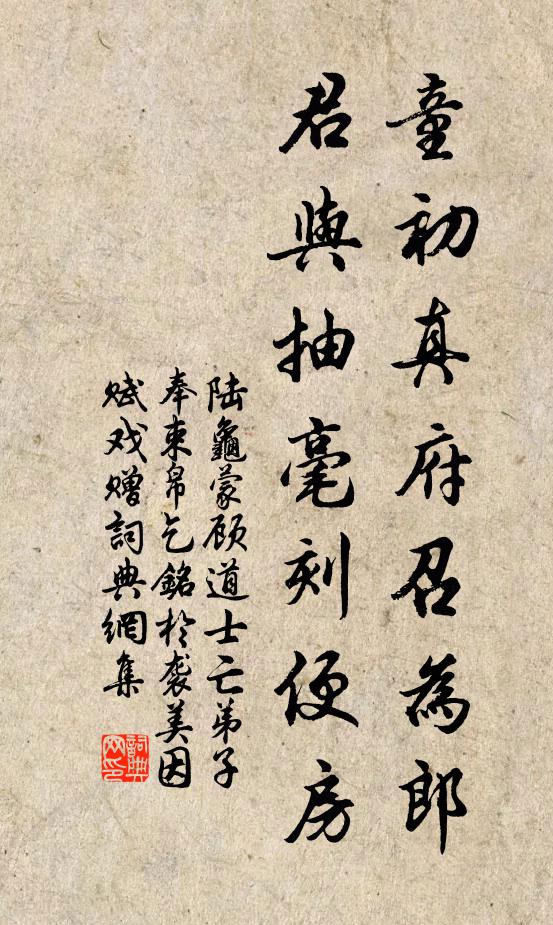 童初真府召為郎
君與抽毫刻便房
陆龜蒙顾道士亡弟子
奉束帛乞銘於袭美因
赋戏赠詞典網集
詞典
网印